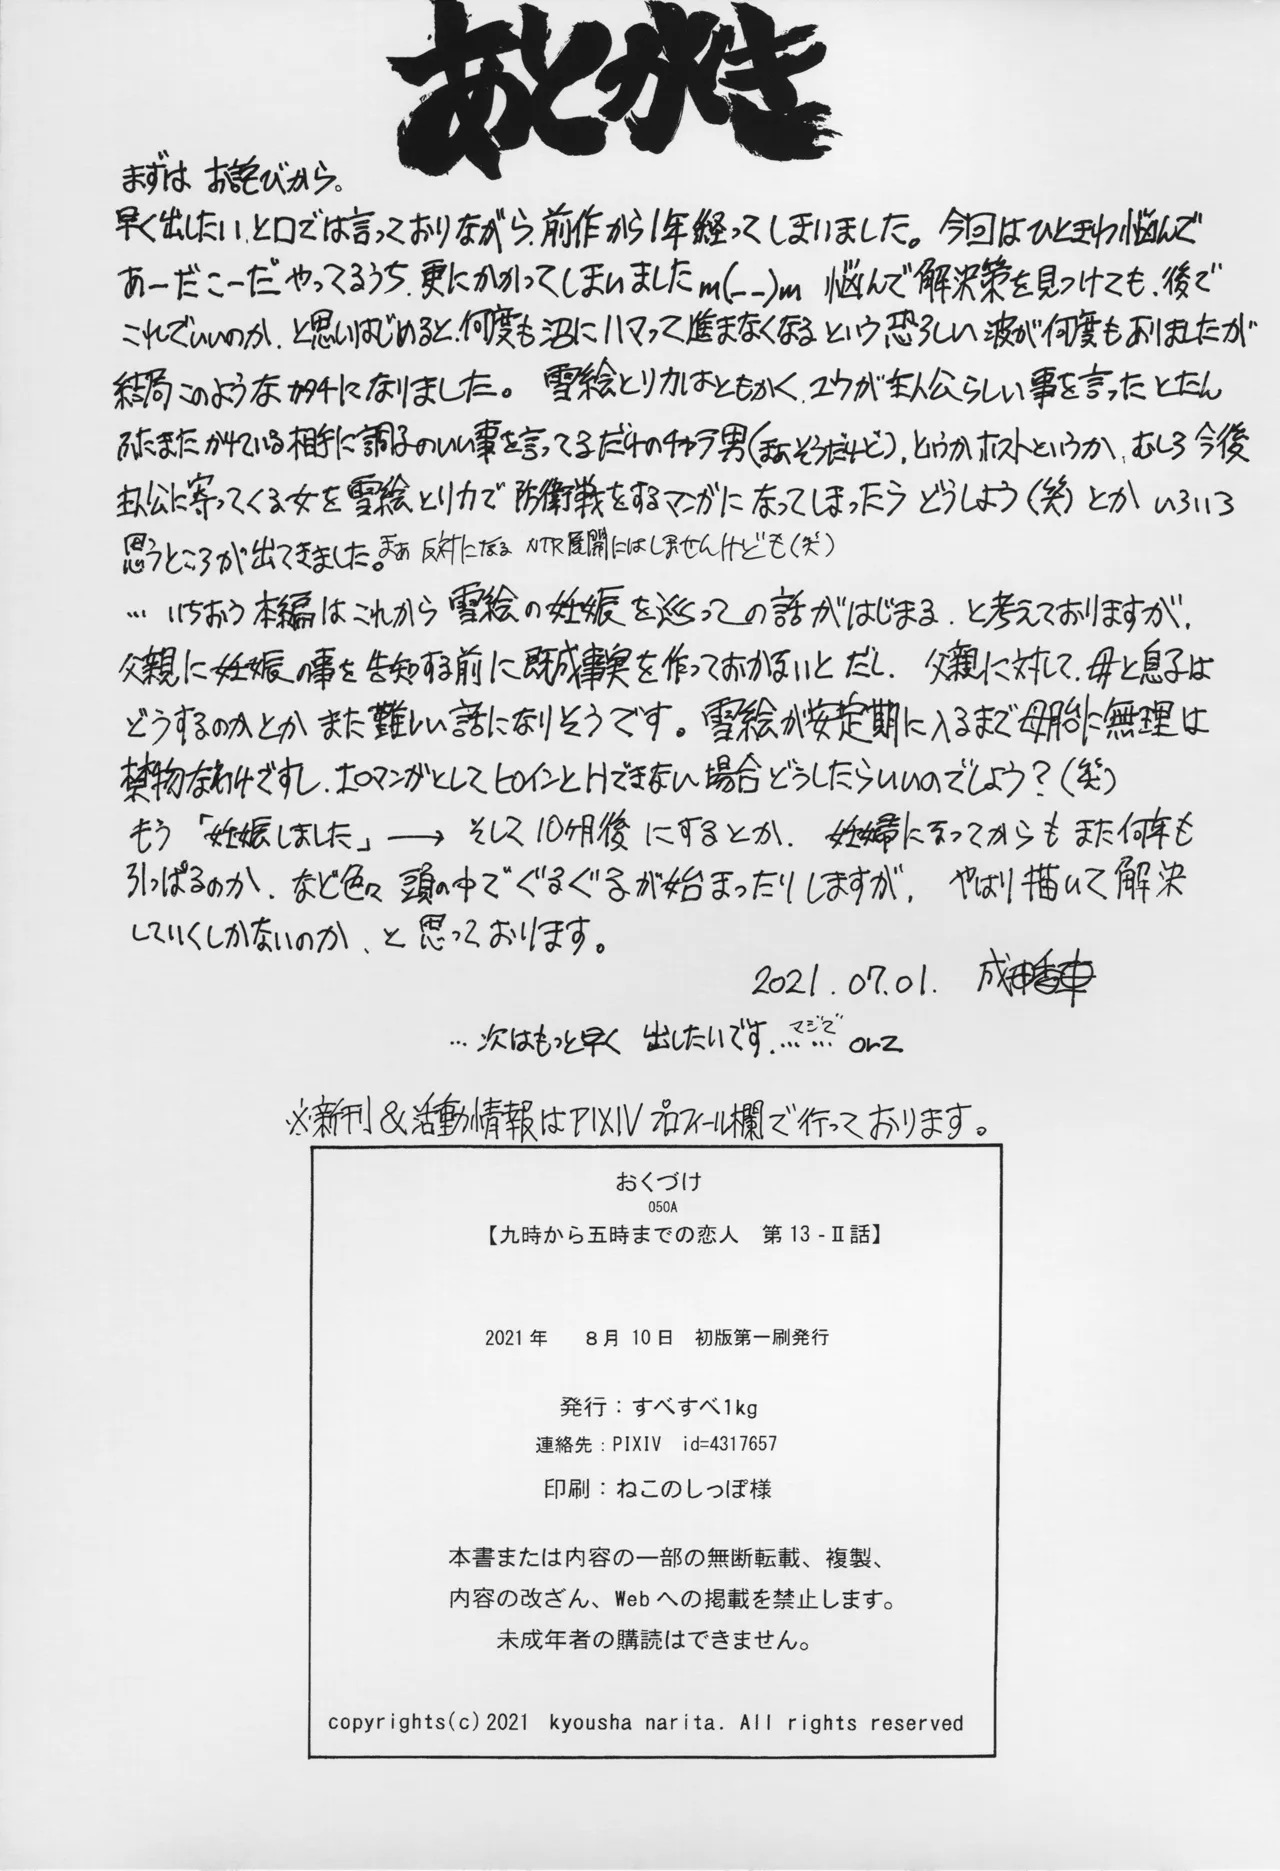 あとがき
まずは お詫びから。
早く出したい、と口では言っておりながら、前作から1年経ってしまいました。今回はひときわ悩んで
あーだこーだ やってるうち、更にかかってしまいましたm(__)m 悩んで解決策を見つけても、後で
これでいいのか、と思いはじめると、何度も沼にハマって進まなくなるという恐ろしい波が何度もありましたが
結局このようなカタチになりました。 雪絵とリカはともかく、ユウが主人公らしい事を言ったとたん
ふたまたかけている相手に調子のいい事を言ってるだけのチャラ男(まあそうだけど)、というかホストというか、むしろ今後
主人公に寄ってくる女を雪絵とリカで防衛戦をするマンガになってしまったらどうしよう(笑)とか いろいろ
思うところが出てきました。まあ 反対になる NTR展開にはしませんけども(笑)
… いちおう本編はこれから雪絵の妊娠を巡っての話がはじまる、と考えておりますが、
父親に妊娠の事を告知する前に既成事実を作っておかないとだし、 父親に対して、母と息子は
どうするのかとか また難しい話になりそうです。雪絵が安定期に入るまで母胎に無理は
禁物なわけですし、エロマンガとしてヒロインとHできない場合どうしたらいいのでしょう?(笑)
もう 「妊娠しました」→ そして10ヶ月後 にするとか、 妊婦に至ってからも また何年も
引っぱるのか、など色々 頭の中でぐるぐるが始まったりしますが、 やはり描いて解決
していくしかないのか、と思っております。
2021.07.01. 成田香車
… 次はもっと早く 出したいです、マジで…… orz
※新刊&活動情報はPIXIVプロフィール欄で行っております。
おくづけ
050A
【九時から五時までの恋人 第13-Ⅱ話】
2021年 8月10日 初版第一刷発行
発行：すべすべ1kg
連絡先：PIXIV id=4317657
印刷：ねこのしっぽ様
本書または内容の一部の無断転載、複製、
内容の改ざん、Webへの掲載を禁止します。
未成年者の購読はできません。
copyrights(c)2021 kyousha narita. All rights reserved